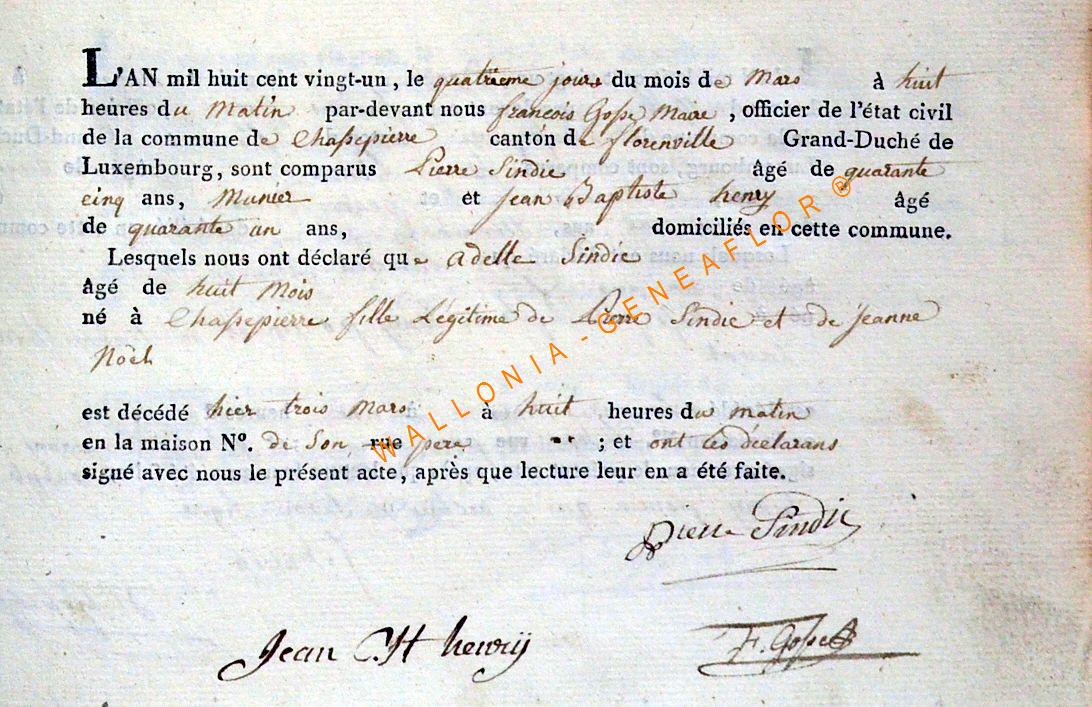 L'AN mil huit cent vingt-un, le quatrieme jours du mois de Mars à huit
heures du Matin par-devant nous françois Gosse Maire, officier de l'état civil
de la commune de Chassepierre canton de florenville Grand-Duché de
Luxembourg, sont comparus Pierre Sindic âgé de quarante
cinq ans, Munier et Jean Baptiste henry âgé
de quarante un ans, domiciliés en cette commune.
Lesquels nous ont déclaré que adelle Sindic
âgé de huit Mois
né à Chassepierre fille Légitime de Pierre Sindic et de Jeanne
Noël
est décédé hier trois Mars à huit heures du matin
en la maison N°. de Son rue pere ; et ont les déclarans
signé avec nous le présent acte, après que lecture leur en a été faite.
Pierre Sindic
Jean Bt henry
F. Gosse
WALLONIA - GENEAFLOR ®